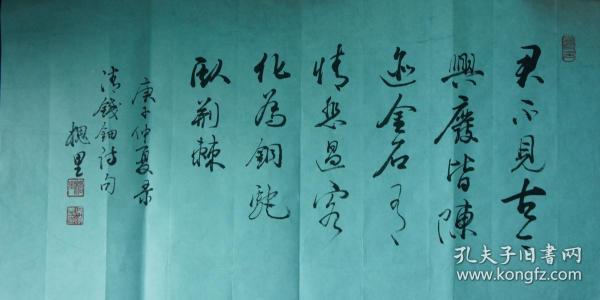 君不見古今
興廢皆陳
迹金石有
情愁過客
化為銅駝
臥荊棘
庚子仲夏录
清錢鈿詩句
里
孔夫子旧书网
www.kongfz.com